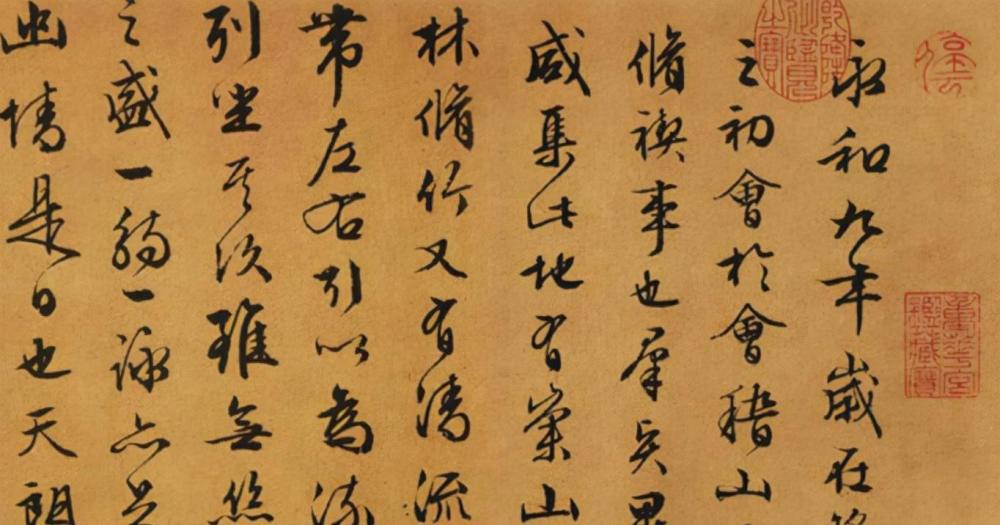 重華宮鑑藏寶
永和九年歲在
乾隆御覽之寶
之初會於會稽山
脩禊事也羣賢畢
咸集此地有崇山
林脩竹又有清流
帶左右引以為流
列坐其次雖無絲
之盛一觴一詠亦足
幽情是日也天朗